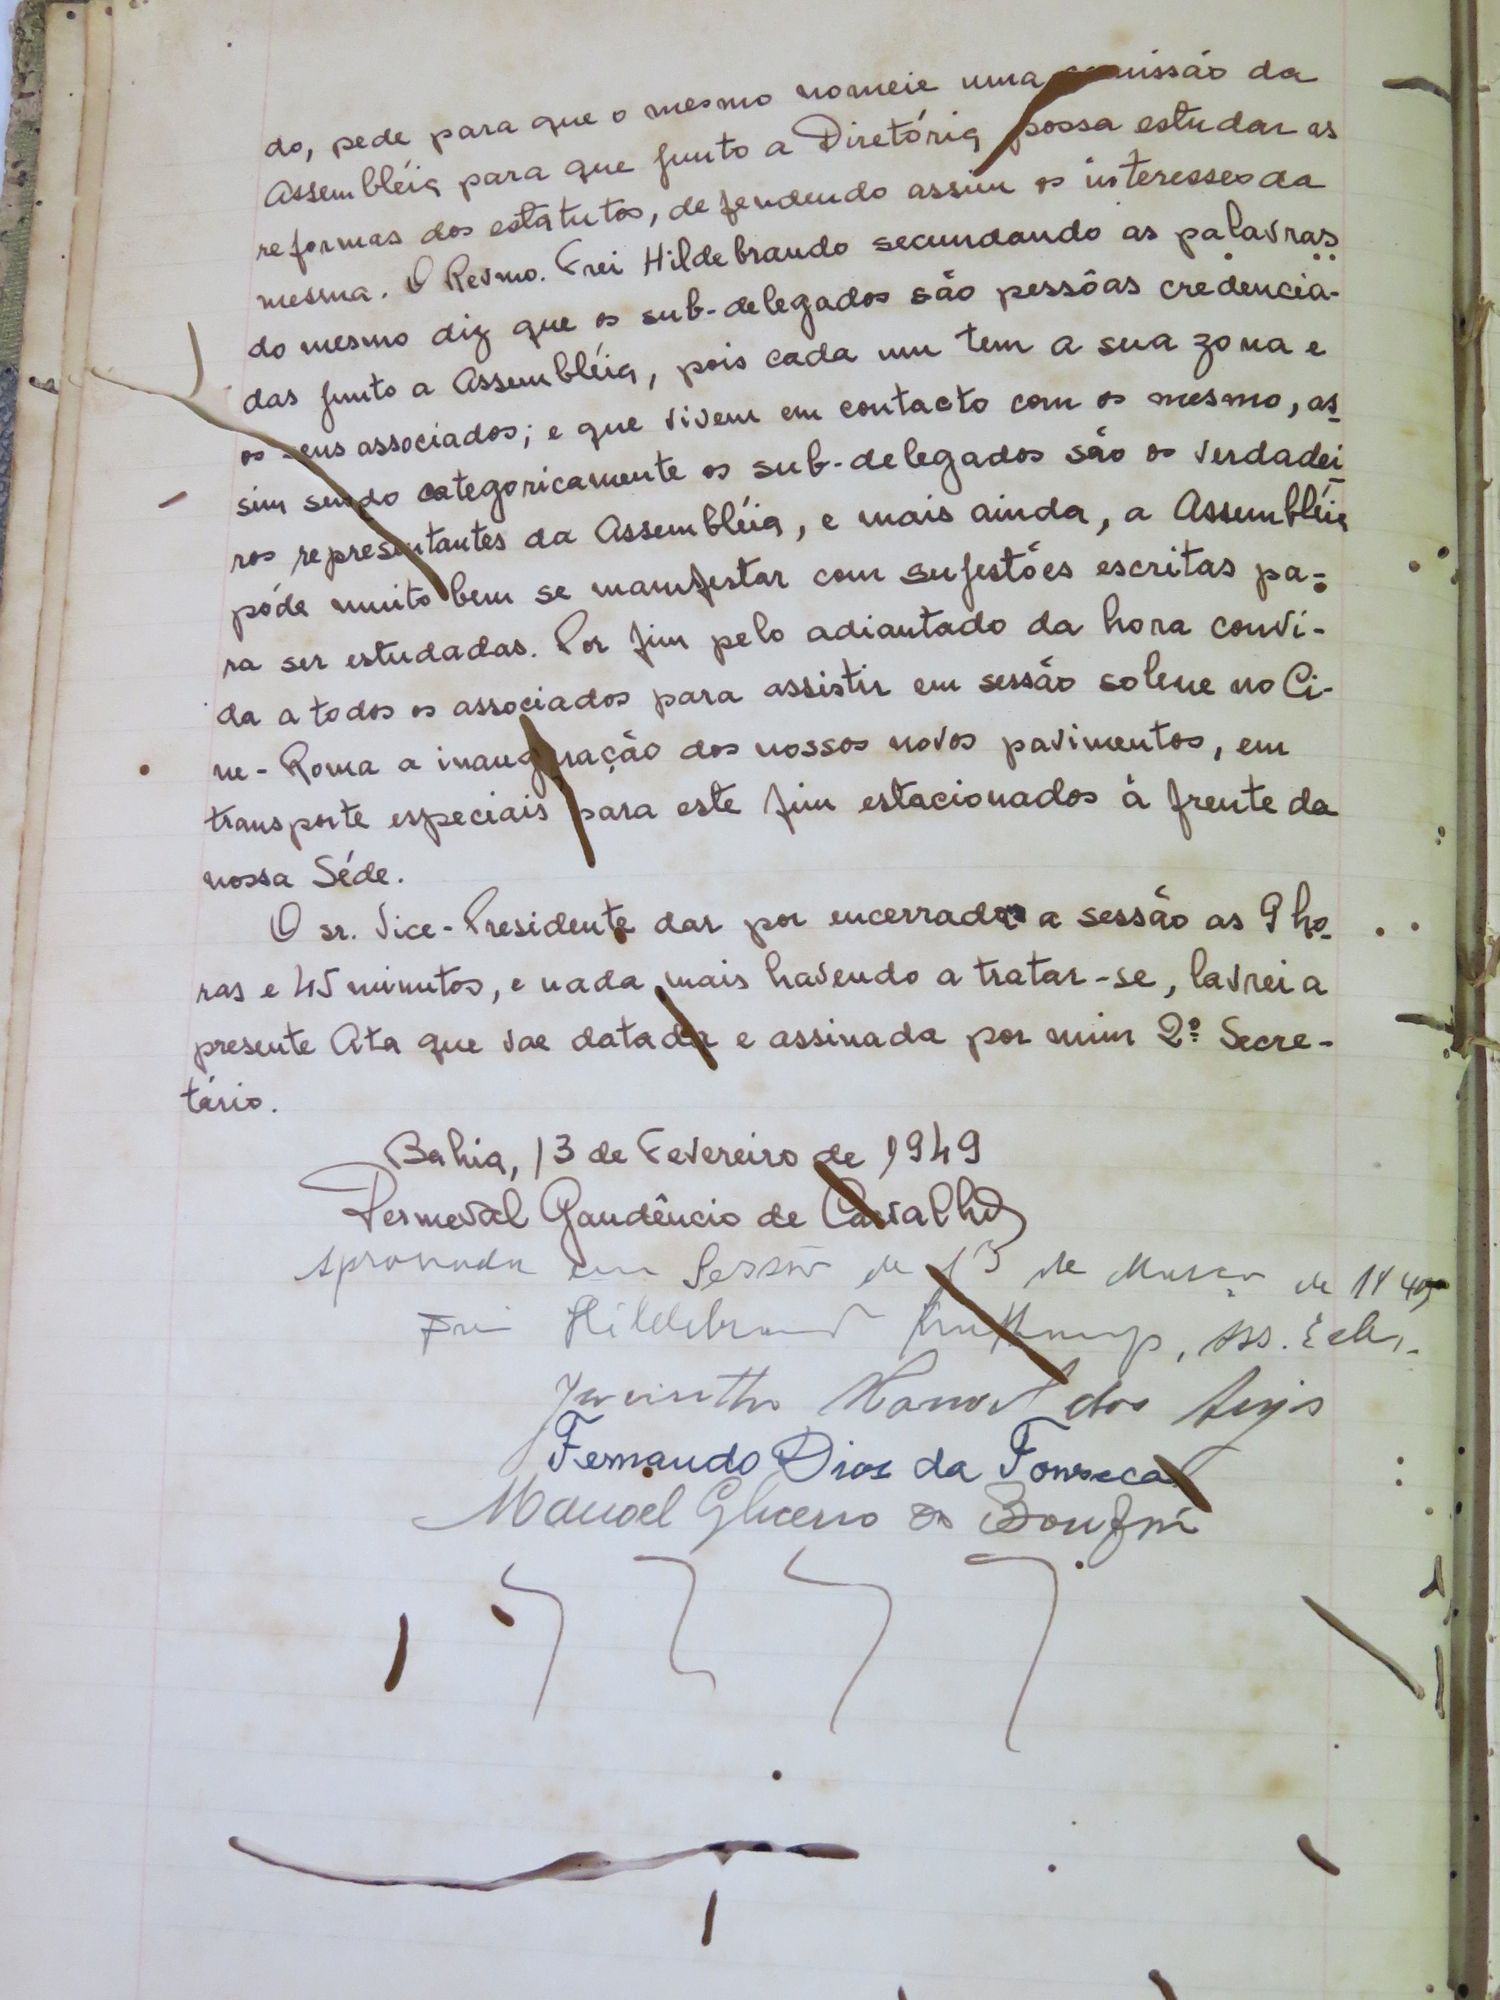 do, pede para que o mesmo nomeie uma comissão da
Assembléia para que junto a Diretória possa estudar as
reformas dos estatutos, defendendo assim os interesses da
mesma. O Revmo. Frei Hildebrando secundando as palavras
do mesmo diz que os sub-delegados são pessôas credencia-
das junto a Assembléia, pois cada um tem a sua zona e
os seus associados; e que vivem em contacto com os mesmo, as-
sim sendo categoricamente os sub-delegados são os verdadei-
ros representantes da Assembléia, e mais ainda, a Assembléia
póde muito bem se manifestar com sujestões escritas pa-
ra ser estudadas. Por fim pelo adiantado da hora convi-
da a todos os associados para assistir em sessão solene no Ci-
ne-Roma a inauguração dos nossos novos pavimentos, em
transporte especiais para este fim estacionados à frente da
nossa Séde.
O sr. Vice-Presidente dar por encerrada a sessão as 9 ho-
ras e 45 minutos, e nada mais havendo a tratar-se, lavrei a
presente Ata que vae datada e assinada por mim 2º Secre-
tário.
Bahia, 13 de Fevereiro de 1949
Permeval Gaudêncio de Carvalho
Aprovada em Sessão de 13 de Março de 1949
Frei Hildebrando Kruthaup, Ass. Ecles.
Jacintho Manoel dos Anjos
Fernando Dias da Fonseca
Manoel Glicerio do Bonfim